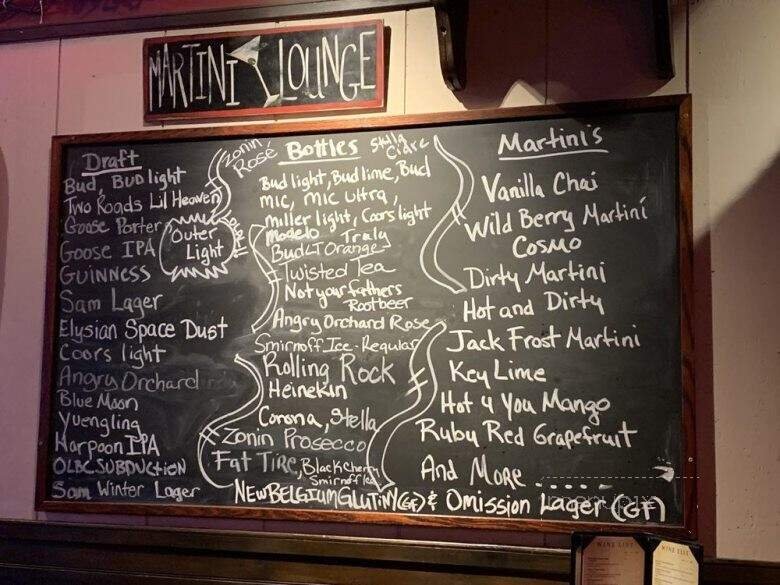 MARTINI LOUNGE
Draft
Bud, Bud light
Two Roads Lil Heaven
Goose Porter
Goose IPA
GUINNESS
Sam Lager
Elysian Space Dust
Coors light
Angry Orchard
Blue Moon
Yuengling
Harpoon IPA
OLBC SUBDUCTION
Sam Winter Lager
Outer
Light
Zonin
Rosé
Bottles
Stella
Cidre
Bud light, Bud lime, Bud
mic, mic ultra,
miller light, Coors light
Modelo Truly
Bud LT Orange
Twisted Tea
Not your fathers
Rootbeer
Angry Orchard Rose
Smirnoff Ice - Regular
Rolling Rock
Heinekin
Corona, Stella
Zonin Prosecco
Fat TIRE, Black Cherry
Smirnoff Ice
NEW BELGIUM GLUTINY (GF) & Omission Lager (GF)
Martini's
Vanilla Chai
Wild Berry Martini
Cosmo
Dirty Martini
Hot and Dirty
Jack Frost Martini
Key Lime
Hot 4 You Mango
Ruby Red Grapefruit
And More .....
WINE LIST
WINE LIST